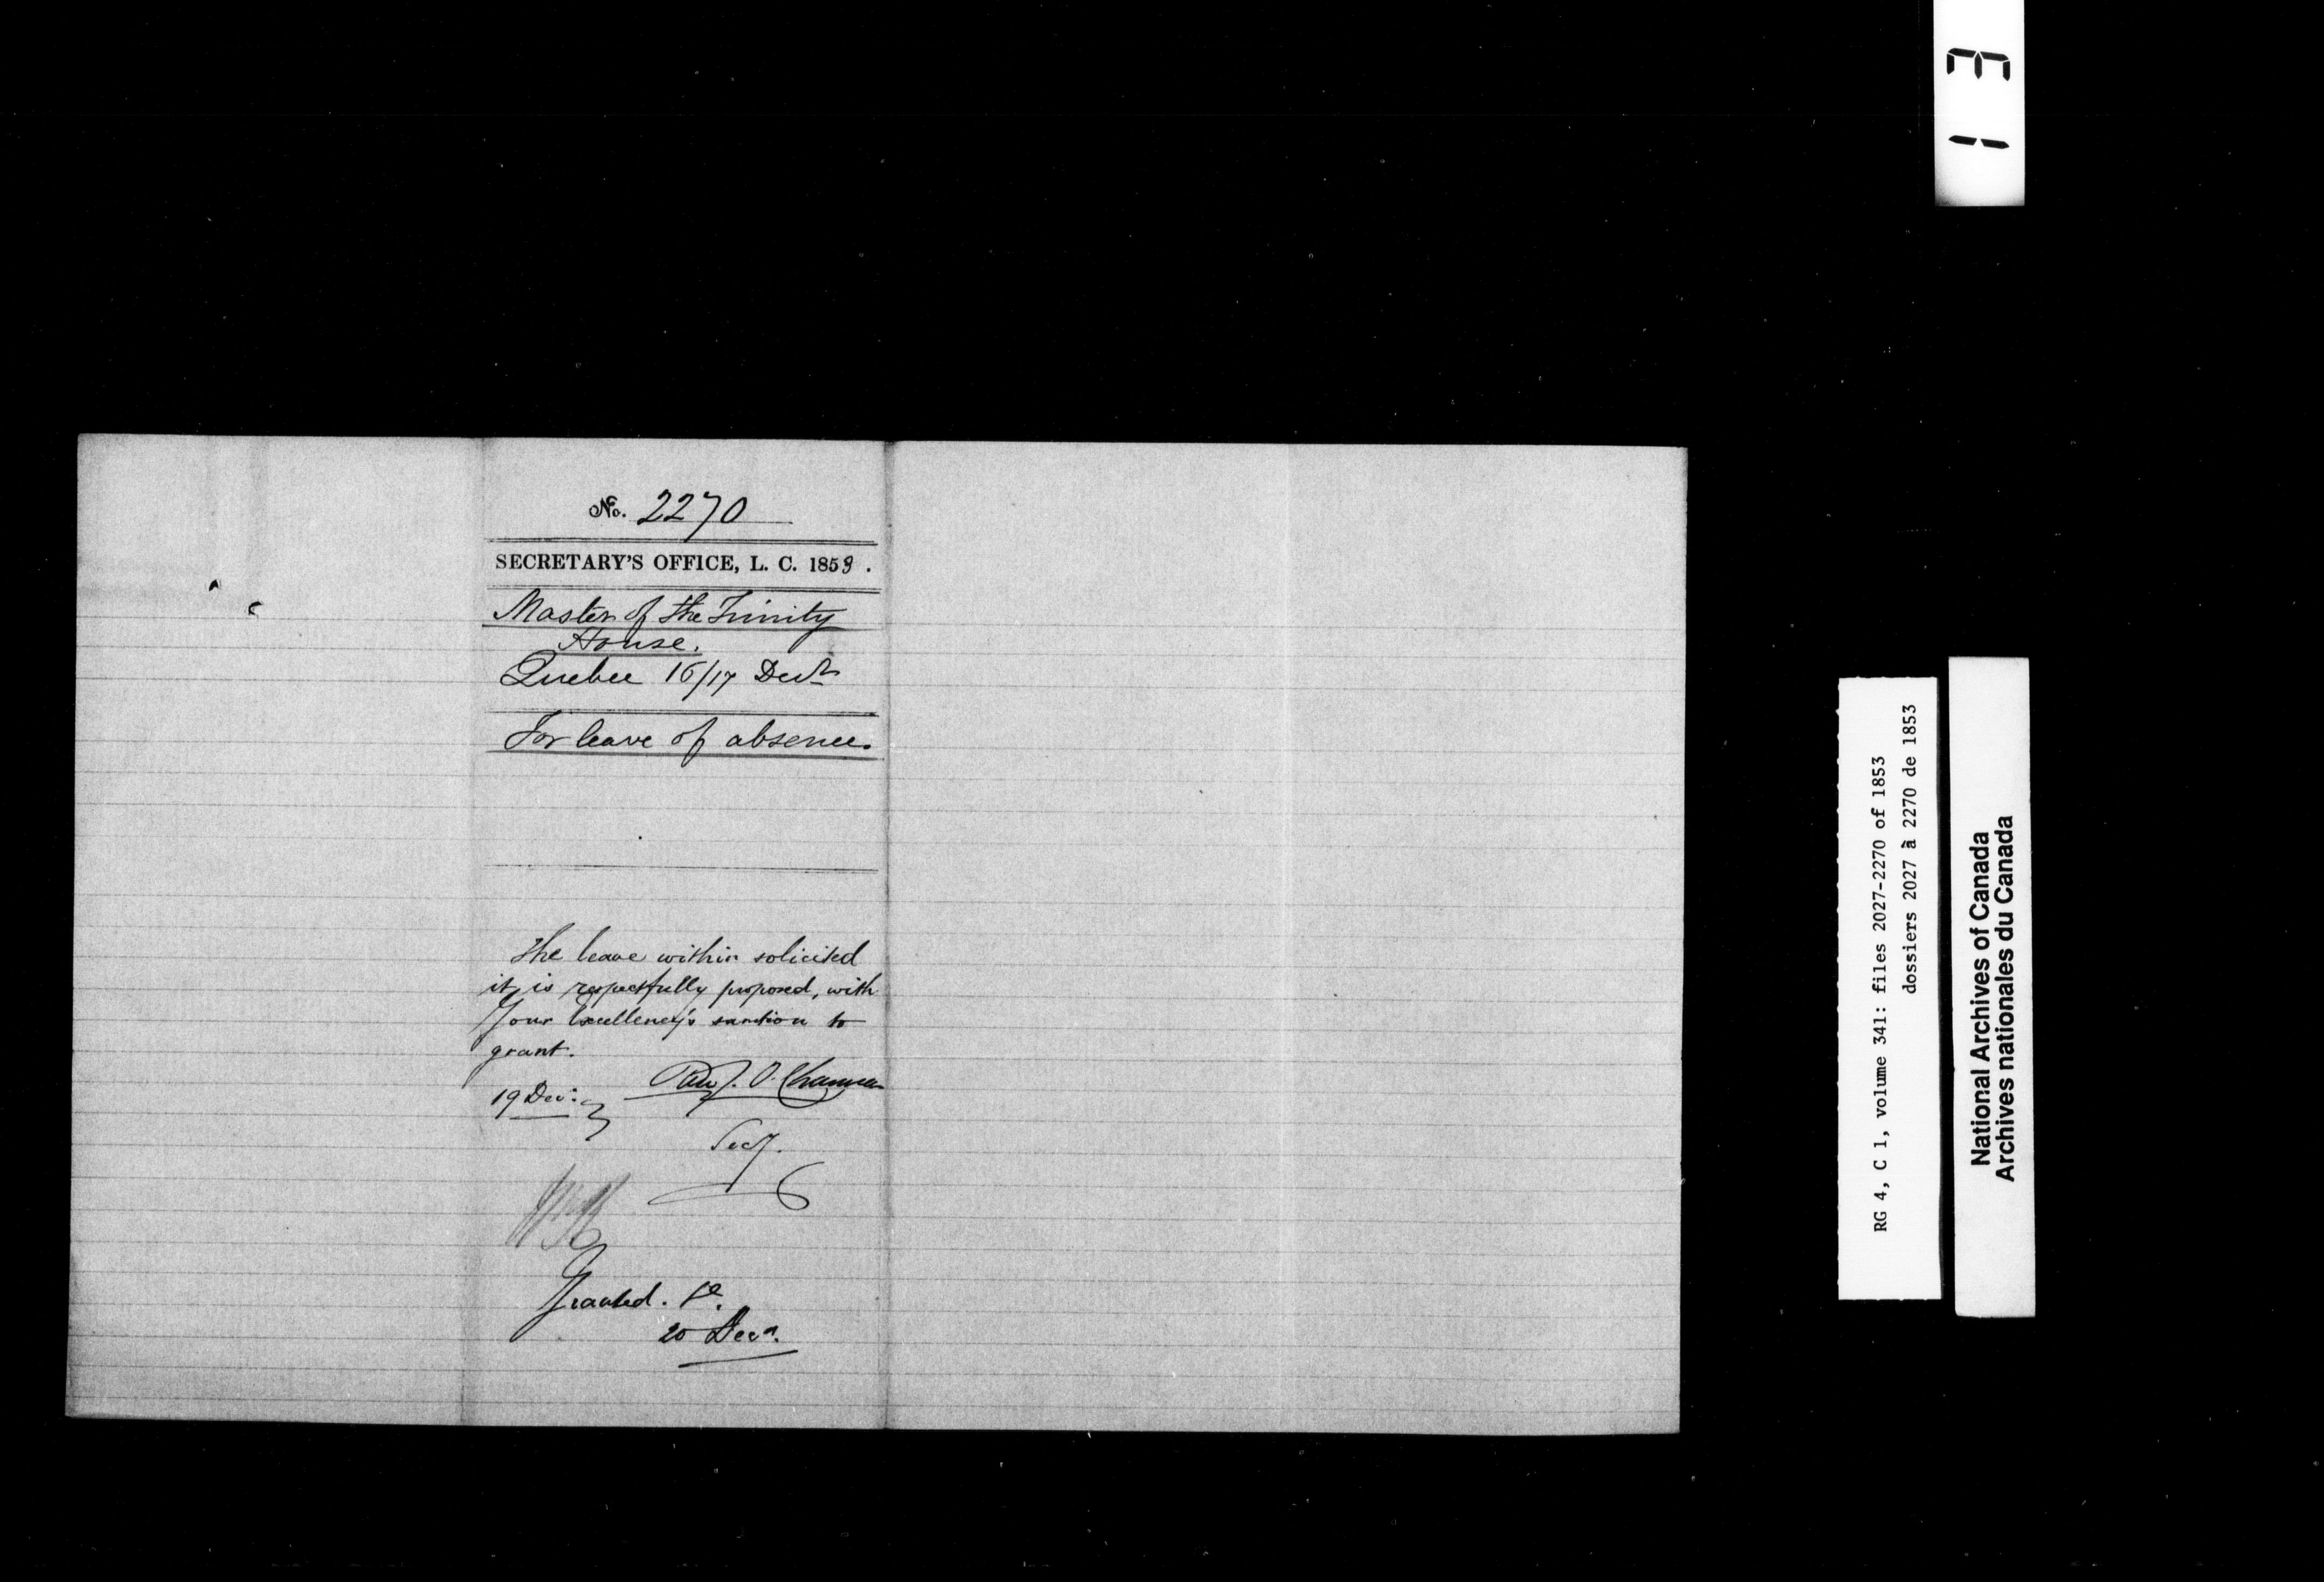 No. 2270
SECRETARY'S OFFICE, L. C. 1853.
Master of the Trinity
House.
Quebec 16/17 Decr
For leave of absence.
The leave within solicited
it is respectfully proposed, with
Your Excellency's sanction to
grant.
19 Dec:
P. J. O. Chauveau
Secy.
Granted.
20 Decr.
13
RG 4, C 1, volume 341: files 2027-2270 of 1853
dossiers 2027 à 2270 de 1853
National Archives of Canada
Archives nationales du Canada